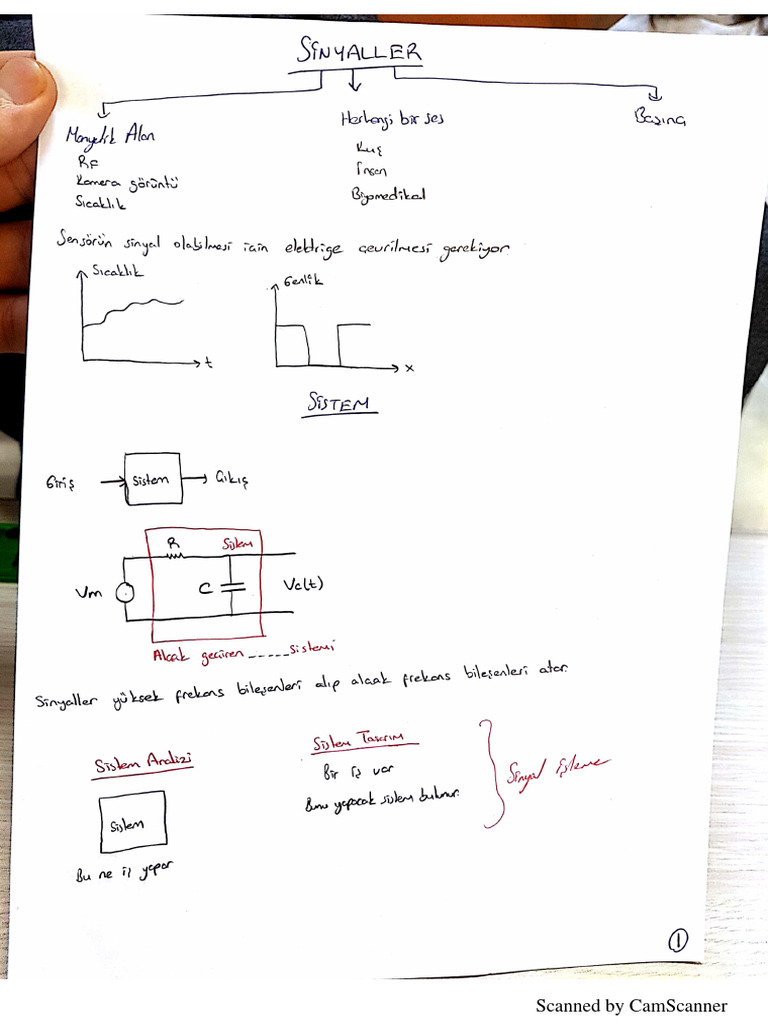 SİNYALLER
Manyetik Alan
RF
Kamera görüntü
Sıcaklık
Herhangi bir ses
Kuş
İnsan
Biyomedikal
Basınç
Sensörün sinyal olabilmesi için elektriğe çevrilmesi gerekiyor.
Sıcaklık
t
Genlik
x
SİSTEM
Giriş
Sistem
Çıkış
R
Sistem
Vm
C
Vc(t)
Alçak geçiren _ _ _ _ _ sistemi
Sinyaller yüksek frekans bileşenleri alıp alçak frekans bileşenleri atar.
Sistem Analizi
Sistem
Bu ne iş yapar
Sistem Tasarım
Bir iş var
Bunu yapacak sistem bulunur.
Sinyal işleme
1
Scanned by CamScanner